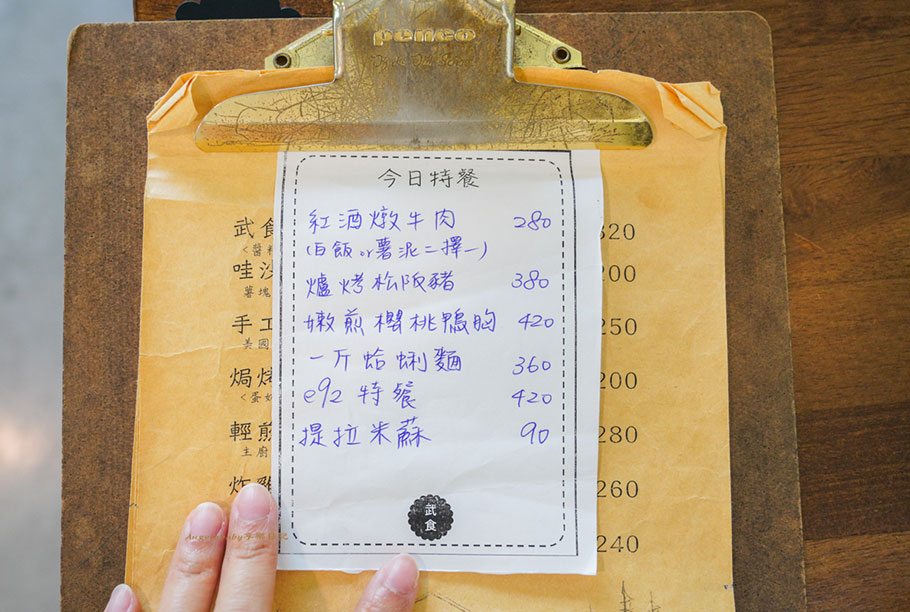 penco
今日特餐
紅酒燉牛肉 280
(白飯 or 薯泥二擇一)
爐烤松阪豬 380
嫩煎櫻桃鴨胸 420
一斤蛤蜊麵 360
e92 特餐 420
提拉米蘇 90
武食
武食 320
<醬
哇沙 200
薯塊
手工 250
美國
焗烤 200
<蛋
輕煎 280
主廚
炸雞 260
240